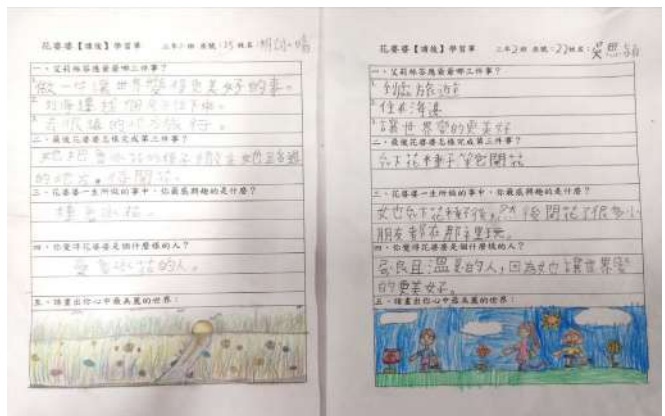 花婆婆【讀後】學習單 三年2班 座號:25 姓名:
一、艾莉絲答應爺爺哪三件事?
1.做一件讓世界變得更美好的事。
2.
3.去很遠的地方旅行。
二、最後花婆婆怎樣完成第三件事?
的地方,等開花。
三、花婆婆一生所做的事中,你最感興趣的是什麼?
種魯冰花。
四、你覺得花婆婆是個什麼樣的人?
愛魯冰花的人。
五、請畫出你心中最美麗的世界:
花婆婆【讀後】學習單 三年2班 座號:22 姓名:吳思
一、艾莉絲答應爺爺哪三件事?
1.到處旅遊
2.住在海邊
3.讓世界變的更美好
二、最後花婆婆怎樣完成第三件事?
灑下花種子等它開花
三、花婆婆一生所做的事中,你最感興趣的是什麼?
她灑下花種後,然後開花了很多小
朋友都在那裡玩。
四、你覺得花婆婆是個什麼樣的人?
善良且溫柔的人,因為她讓世界變
的更美好。
五、請畫出你心中最美麗的世界: